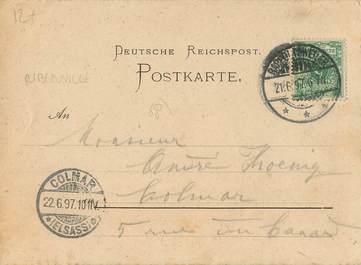 12+
DEUTSCHE REICHSPOST.
RIBEAUVILLE
POSTKARTE.
21.6.97.
An
Monsieur
André Koenig
COLMAR
Colmar
22.6.97.10-11V.
(ELSASS)
5 rue du Canard